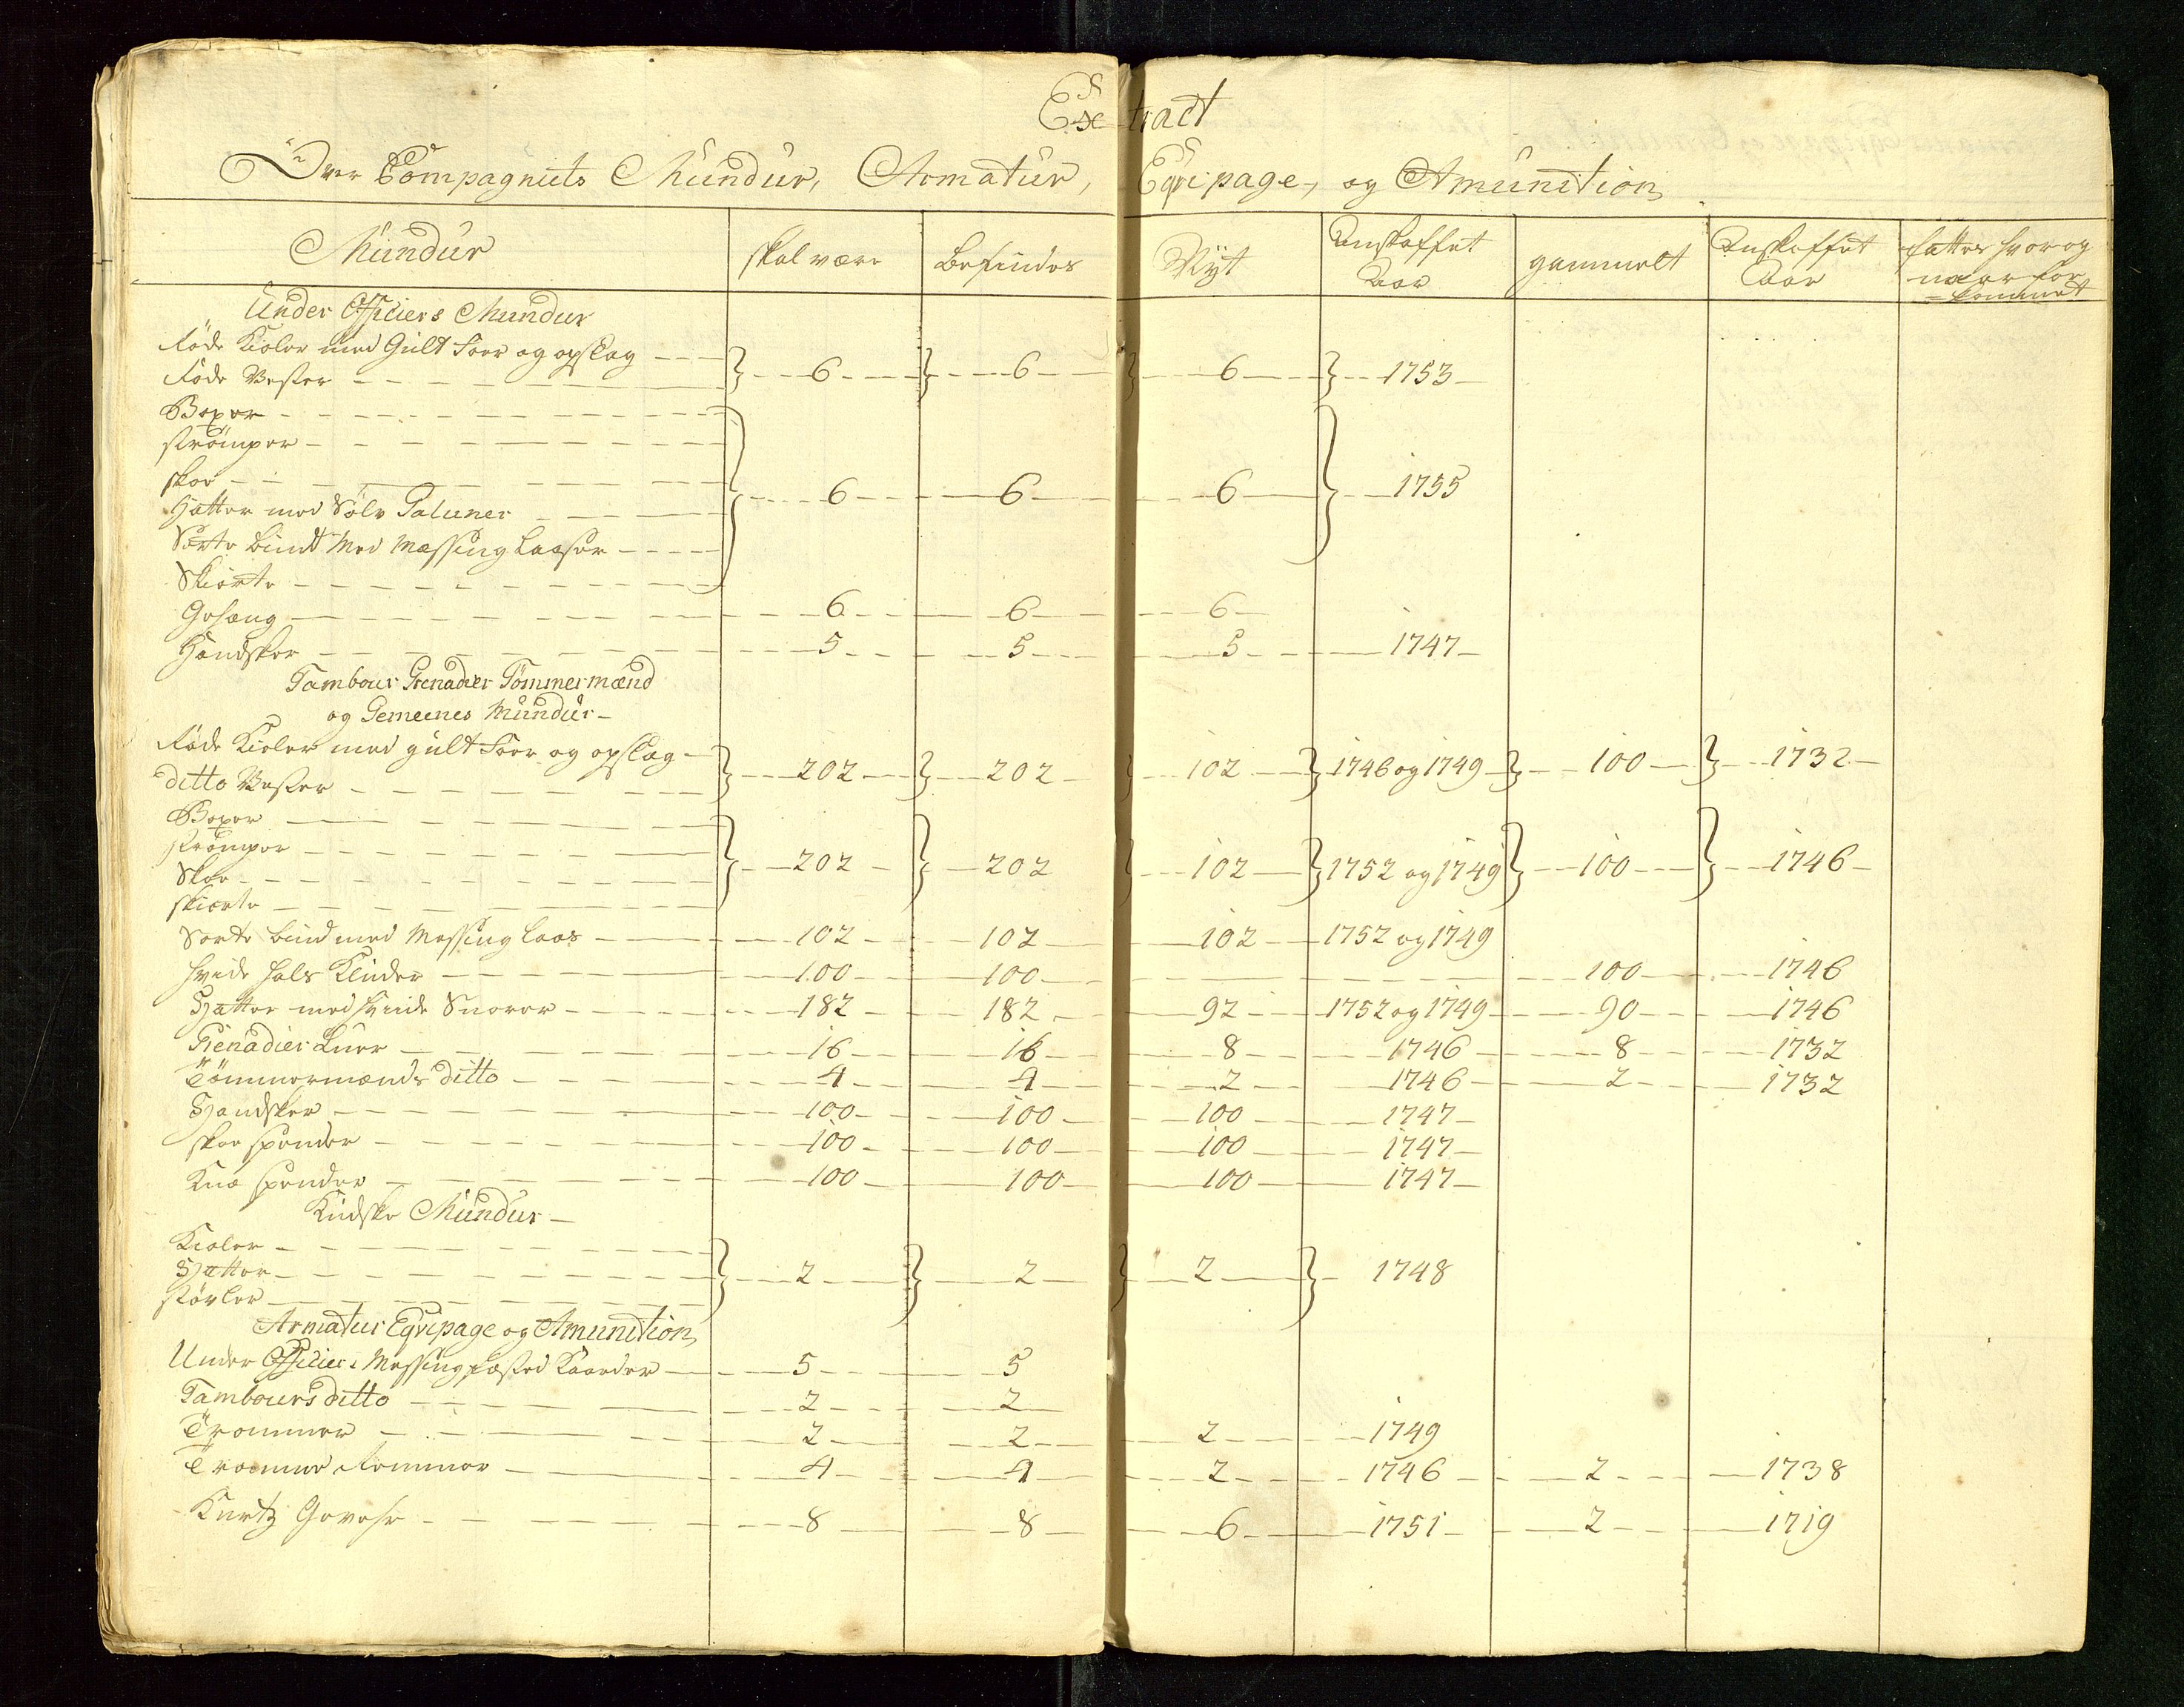 Extract
Over Compagniets Mundur, Armatur, Eqvipage, og Amunition
Mundur skal være Befindes Nyt Anskaffet Aar gammelt Anskaffet Aar fattes hvor og naar for=kommet
Under Officiers Mundur
Røde Kioler med Gult Foer og opslag
Røde Vester 6 6 6 1753
Boxer
strømper
skoe
Hatter med Sølv Galuner 6 6 6 1755
Sorte bind Med Messing Laaser
Skiorte
Gehæng 6 6 6
Handsker 5 5 5 1747
Tambour Grenadier Tømmermænd
og Gemeenes Mundur
Røde Kioler med gult Foer og opslag
ditto Vester 202 202 102 1746 og 1749 100 1732
Boxer
strømper
Skoe 202 202 102 1752 og 1749 100 1746
skiorte
Sorte bind med Messing Laas 102 102 102 1752 og 1749
hvide hals Kluder 100 100 100 1746
Hatter med hvide Snorer 182 182 92 1752 og 1749 90 1746
Grenadier Luer 16 16 8 1746 8 1732
Tømmermænds ditto 4 4 2 1746 2 1732
Handsker 100 100 100 1747
skoe spender 100 100 100 1747
Knæ spender 100 100 100 1747
Kudske Mundur
Kioler
Hatter 2 2 2 1748
støvler
Armatur Eqvipage og Amunition
Under Officiers Messing fæsted Kaarder 5 5
Tambours ditto 2 2
Trommer 2 2 2 1749
Tromme Remmer 4 4 2 1746 2 1738
Kurtz Gevehr 8 8 6 1751 2 1719